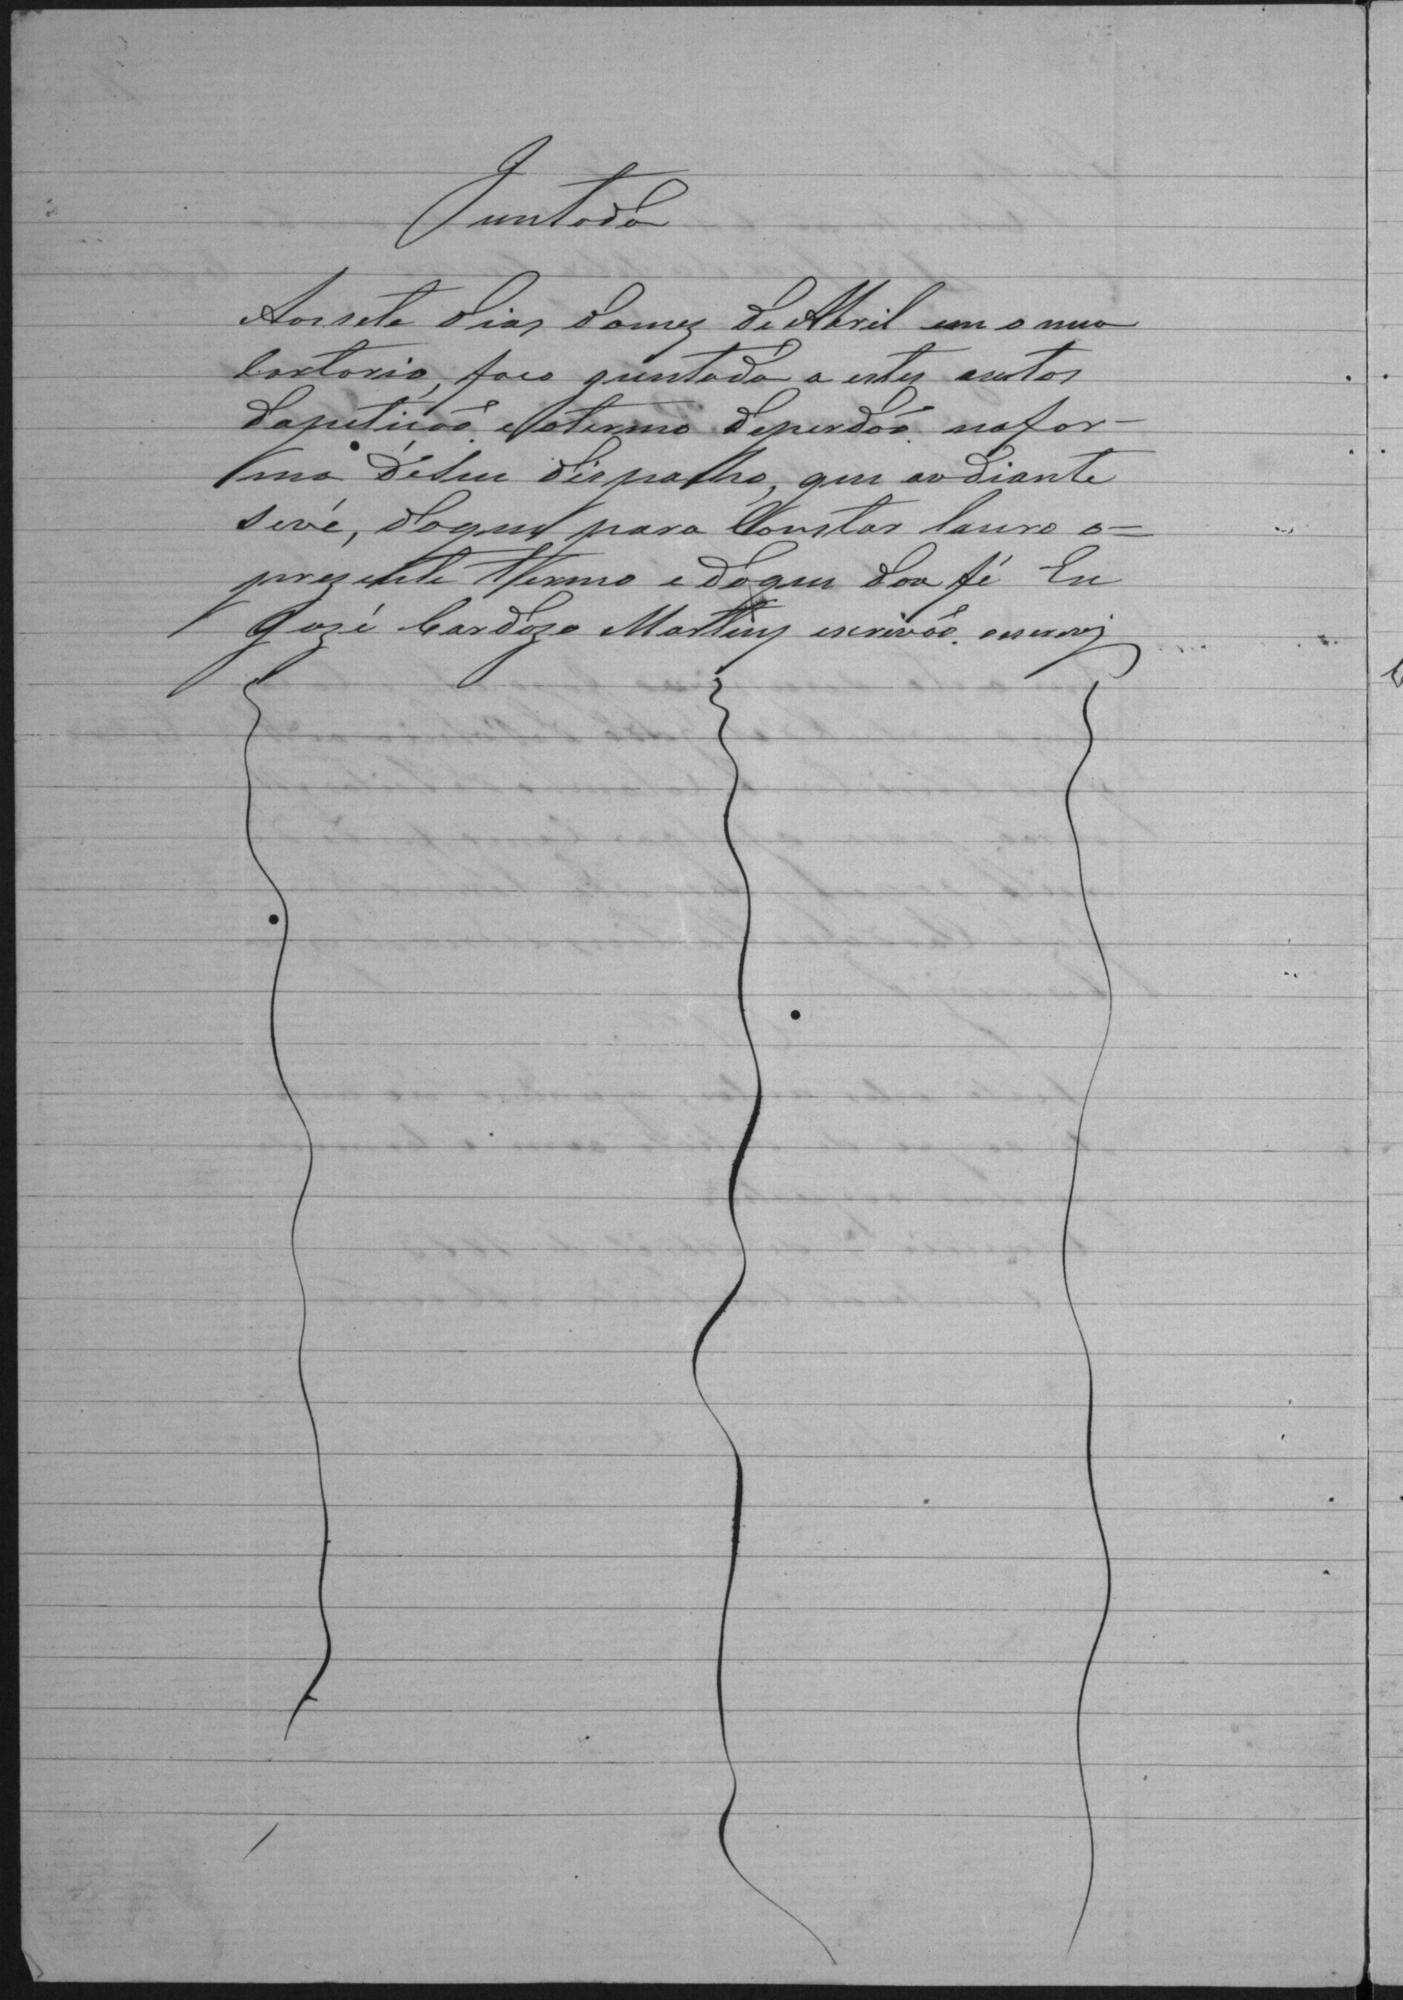 Juntada
Aos sete dias do mez de Abril em o meu
Cartorio, faco juntada a estes autos
da peticaõ e o termo de perdaõ na for-
ma de seu despacho, que ao diante
se vê, do que para Constar lavro o=
prezente Termo e do que dou fé Eu
Jozé Cardozo Martins escrivaõ. o escrevi